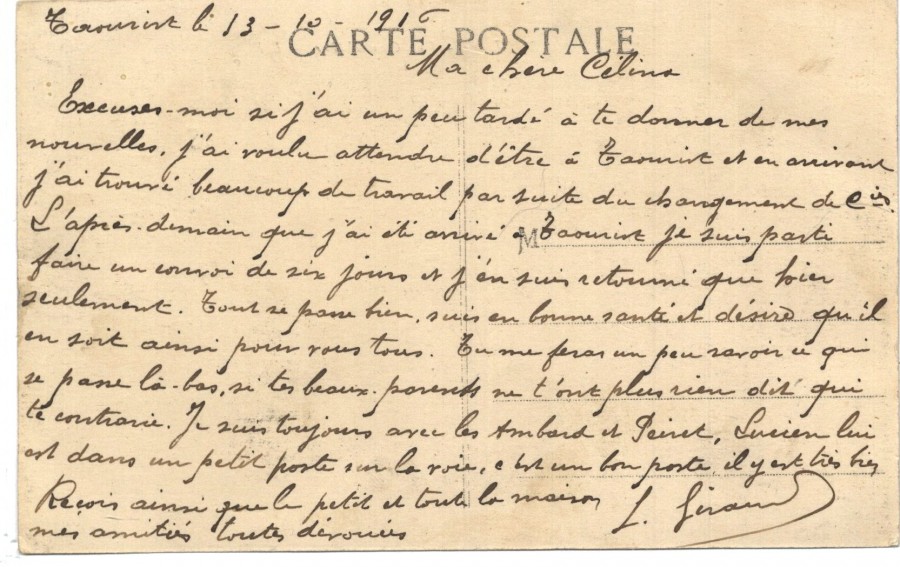 Taourirt le 13-10-1916
CARTE POSTALE
Ma chère Célina
Excuses-moi si j'ai un peu tardé à te donner de mes
nouvelles, j'ai voulu attendre d'être à Taourirt et en arrivant
j'ai trouvé beaucoup de travail par suite du changement de Cies.
L'après-demain que j'ai été arrivé à Taourirt je suis parti
faire un convoi de six jours et j'en suis retourné que hier
seulement. Tout se passe bien, suis en bonne santé et désire qu'il
en soit ainsi pour vous tous. Tu me feras un peu savoir ce qui
se passe là-bas, si tes beaux-parents ne t'ont plus rien dit qui
te contrarie. Je suis toujours avec les Ambard et Peiret, Lucien lui
est dans un petit poste sur la voie, c'est un bon poste, il y est très bien
Reçois ainsi que le petit et toute la maison
mes amitiés toutes dévouées
L. Giraud